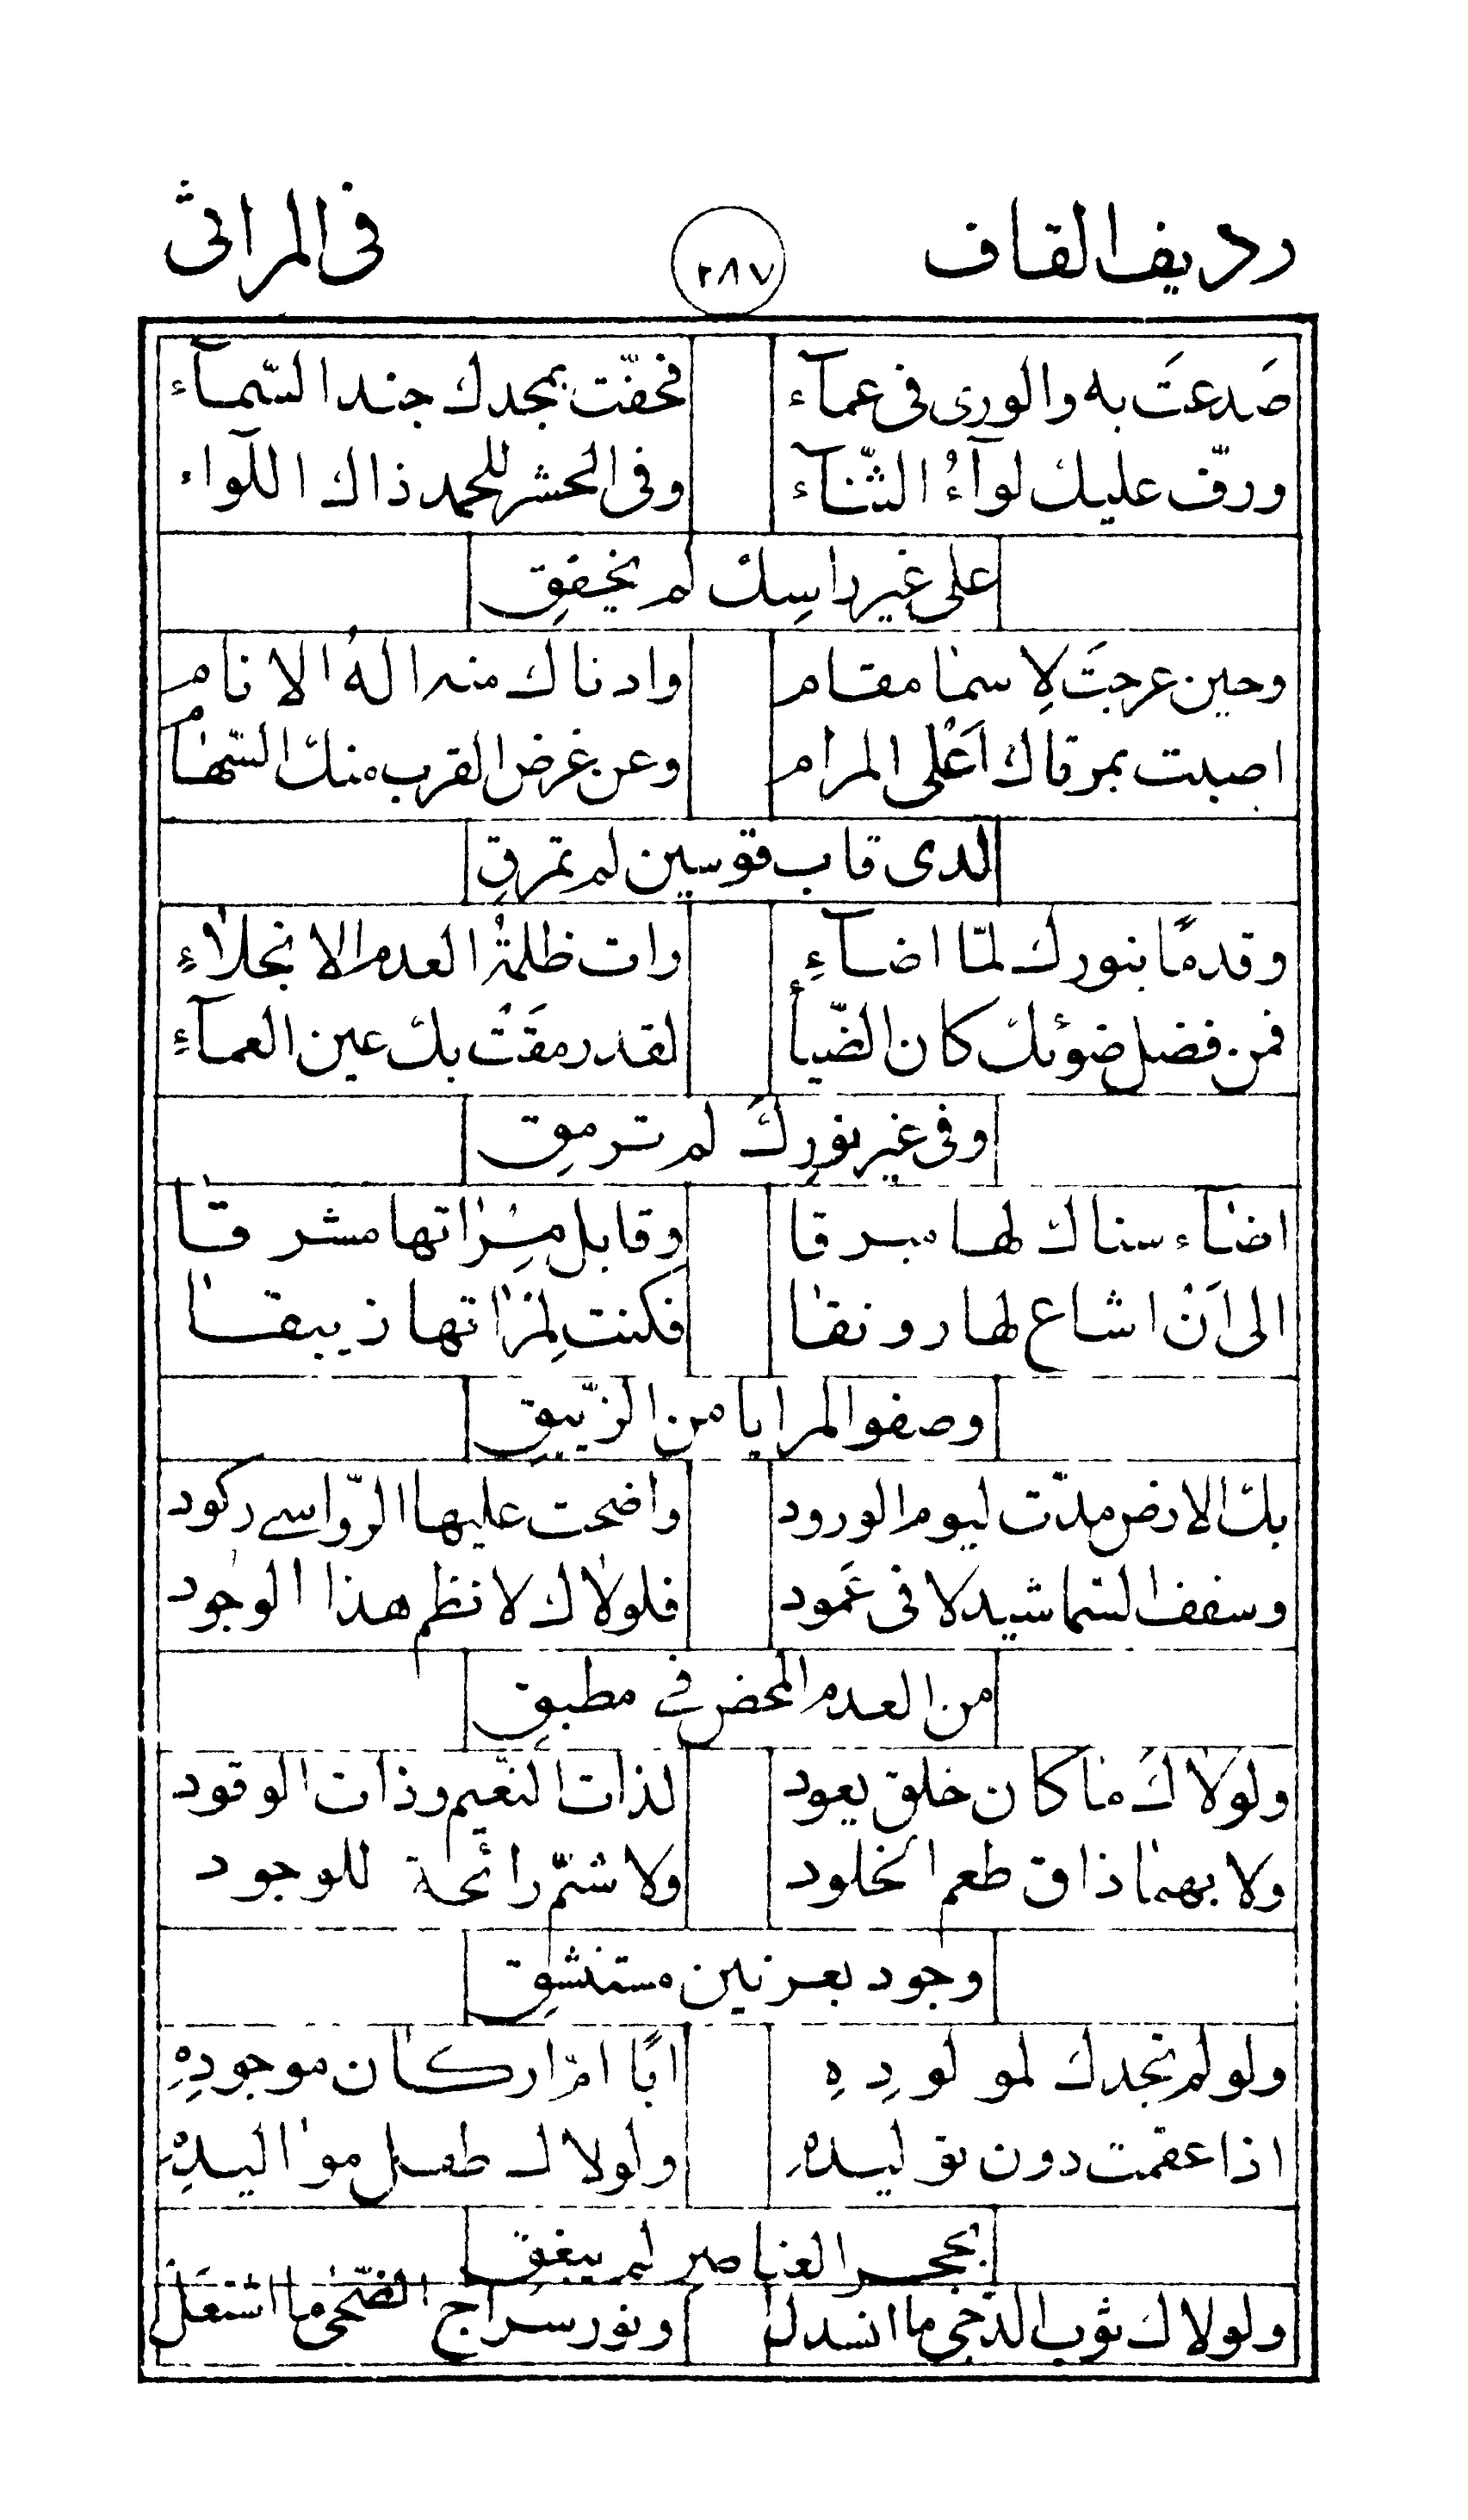 رديف القاف ٢٨٧ فى المراثى
صَدعتَ به والورى فى عمآء فحفّت بمجدك جند السّمآء
ورفّ عليك لوآءُ الثّنآء وفى الحشر للحمد ذاك اللّوآء
على غير راسِك لم يخفقِ
وحين عرجتَ لِاسما مقام وادناك منه الهُ الانام
اصبت بمرقاك اَعْلى المرام وعن غرض القرب منك السّهام
لدى قاب قوسين لم تمرقِ
وقدمًا بنورك لمّا اضآءِ رات ظلمةُ العدم الانجلاءِ
فمن فضل ضوئك كان الضّيأِ لقد رمقَتْ بك عين العمآءِ
وفى غير نورِكَ لم ترمقِ
اضآء سناك لها مبرقا وقابل مِرْاتها مشرقا
الى اَنْ اشاع لها رونقا فكنت لِمرْاتها زيبقا
وصفو المرايا من الزّيبقِ
بك الارض مدّت ليوم الورود واضحت عليها الرّواسے ركود
وسقف السّما شيد لا فى عَمود فلولاك لانظم هذا الوجود
من العدم المحض فے مطبقِ
ولولاكَ ما كان خلق يعود لذات النّعيم وذات الوقود
ولا بهما ذاق طعم الخلود ولا شمّ رائحة للوجود
وجود بعرنين مستنشقِ
ولو لم نجدك لمولودِهِ ابًا امّ اركان موجودِهِ
اذا عقمت دون توليدهِ ولولاك طفل مواليدِهِ
بحجر العناصر لم يبغقِ
ولولاك ثوب الدّجى ما انسدل ونور سراج الضّحى ما اشتعل